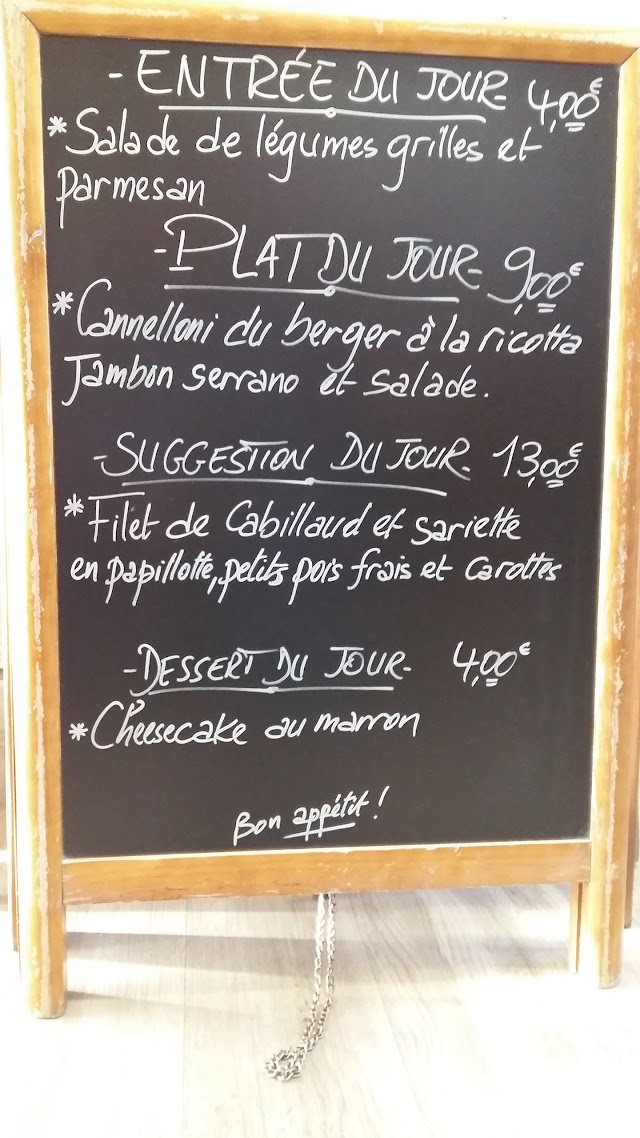 - ENTRÉE DU JOUR 4,00€
* Salade de légumes grilles et
parmesan
- PLAT DU JOUR - 9,00€
* Cannelloni du berger à la ricotta
Jambon serrano et salade.
- SUGGESTION DU JOUR - 13,00€
* Filet de Cabillaud et sariette
en papillotte, petits pois frais et carottes
- DESSERT DU JOUR - 4,00€
* Cheesecake au marron
Bon appétit !